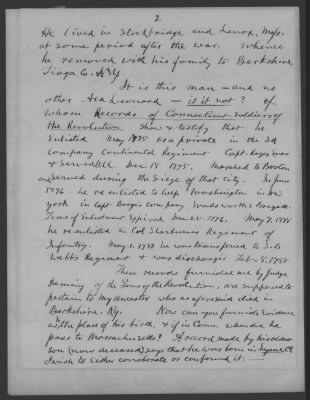 2
He lived in Stockbridge and Lenox, Mass.
at some period after the war, whence
he removed with his family to Berkshire,
Tioga Co. N.Y.
It is this man — and no
other Asa Leonard — is it not? of
whom Records of Connecticut Soldiers of
the Revolution show & testify that he
Enlisted May 1775 as a private in the 3d
Company Continental Regiment Capt.
& Served till Dec 18 1775. Marched to Boston
and Served during the Siege of that city. In June
1776 he re enlisted to help Washington in New
York in Capt Company Wadsworth's Brigade.
Time of Enlistment Expired Dec 25. 1776. May 7, 1778
he re enlisted in Col Sherburne Regiment of
Infantry. May 1. 1780 he was transferred to S.B
Webbs Regiment & was discharged Feb. 8, 1781
These records furnished me by Judge
Deming of the Sons of the Revolution, are supposed to
pertain to my ancestor who as aforesaid died in
Berkshire. Ny. Now can you furnish evidence
as to the place of his birth, & if in Conn. when did he
pass to Massachusetts? A record made by his
son (now deceased) says that he was born in Ct
I wish to either corroborate or confound it. —